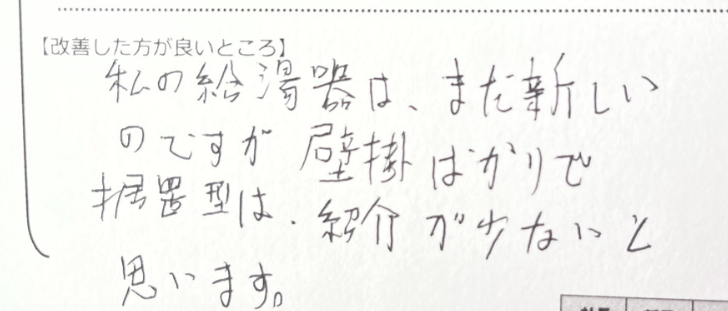 【改善した方が良いところ】
私の給湯器は、まだ新しい
のですが 壁掛ばかりで
据置型は、紹介が少ないと
思います。